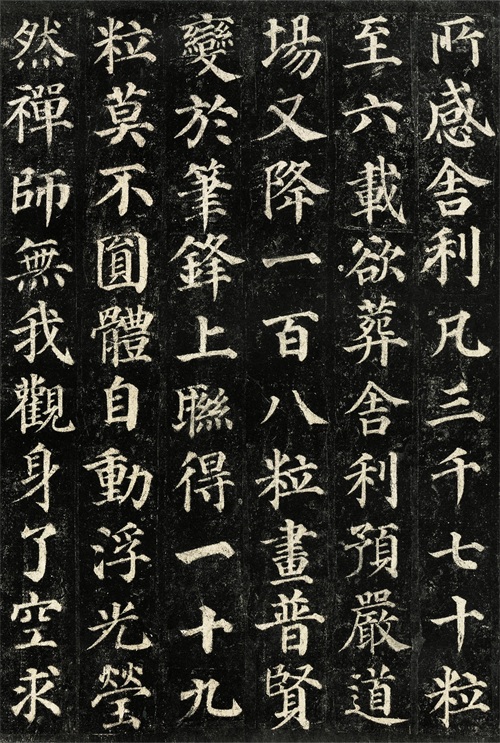 所感舍利凡三千七十粒
至六載欲葬舍利預嚴道
場又降一百八粒畫普賢
變於筆鋒上聯得一十九
粒莫不圎體自動浮光瑩
然禪師無我觀身了空求